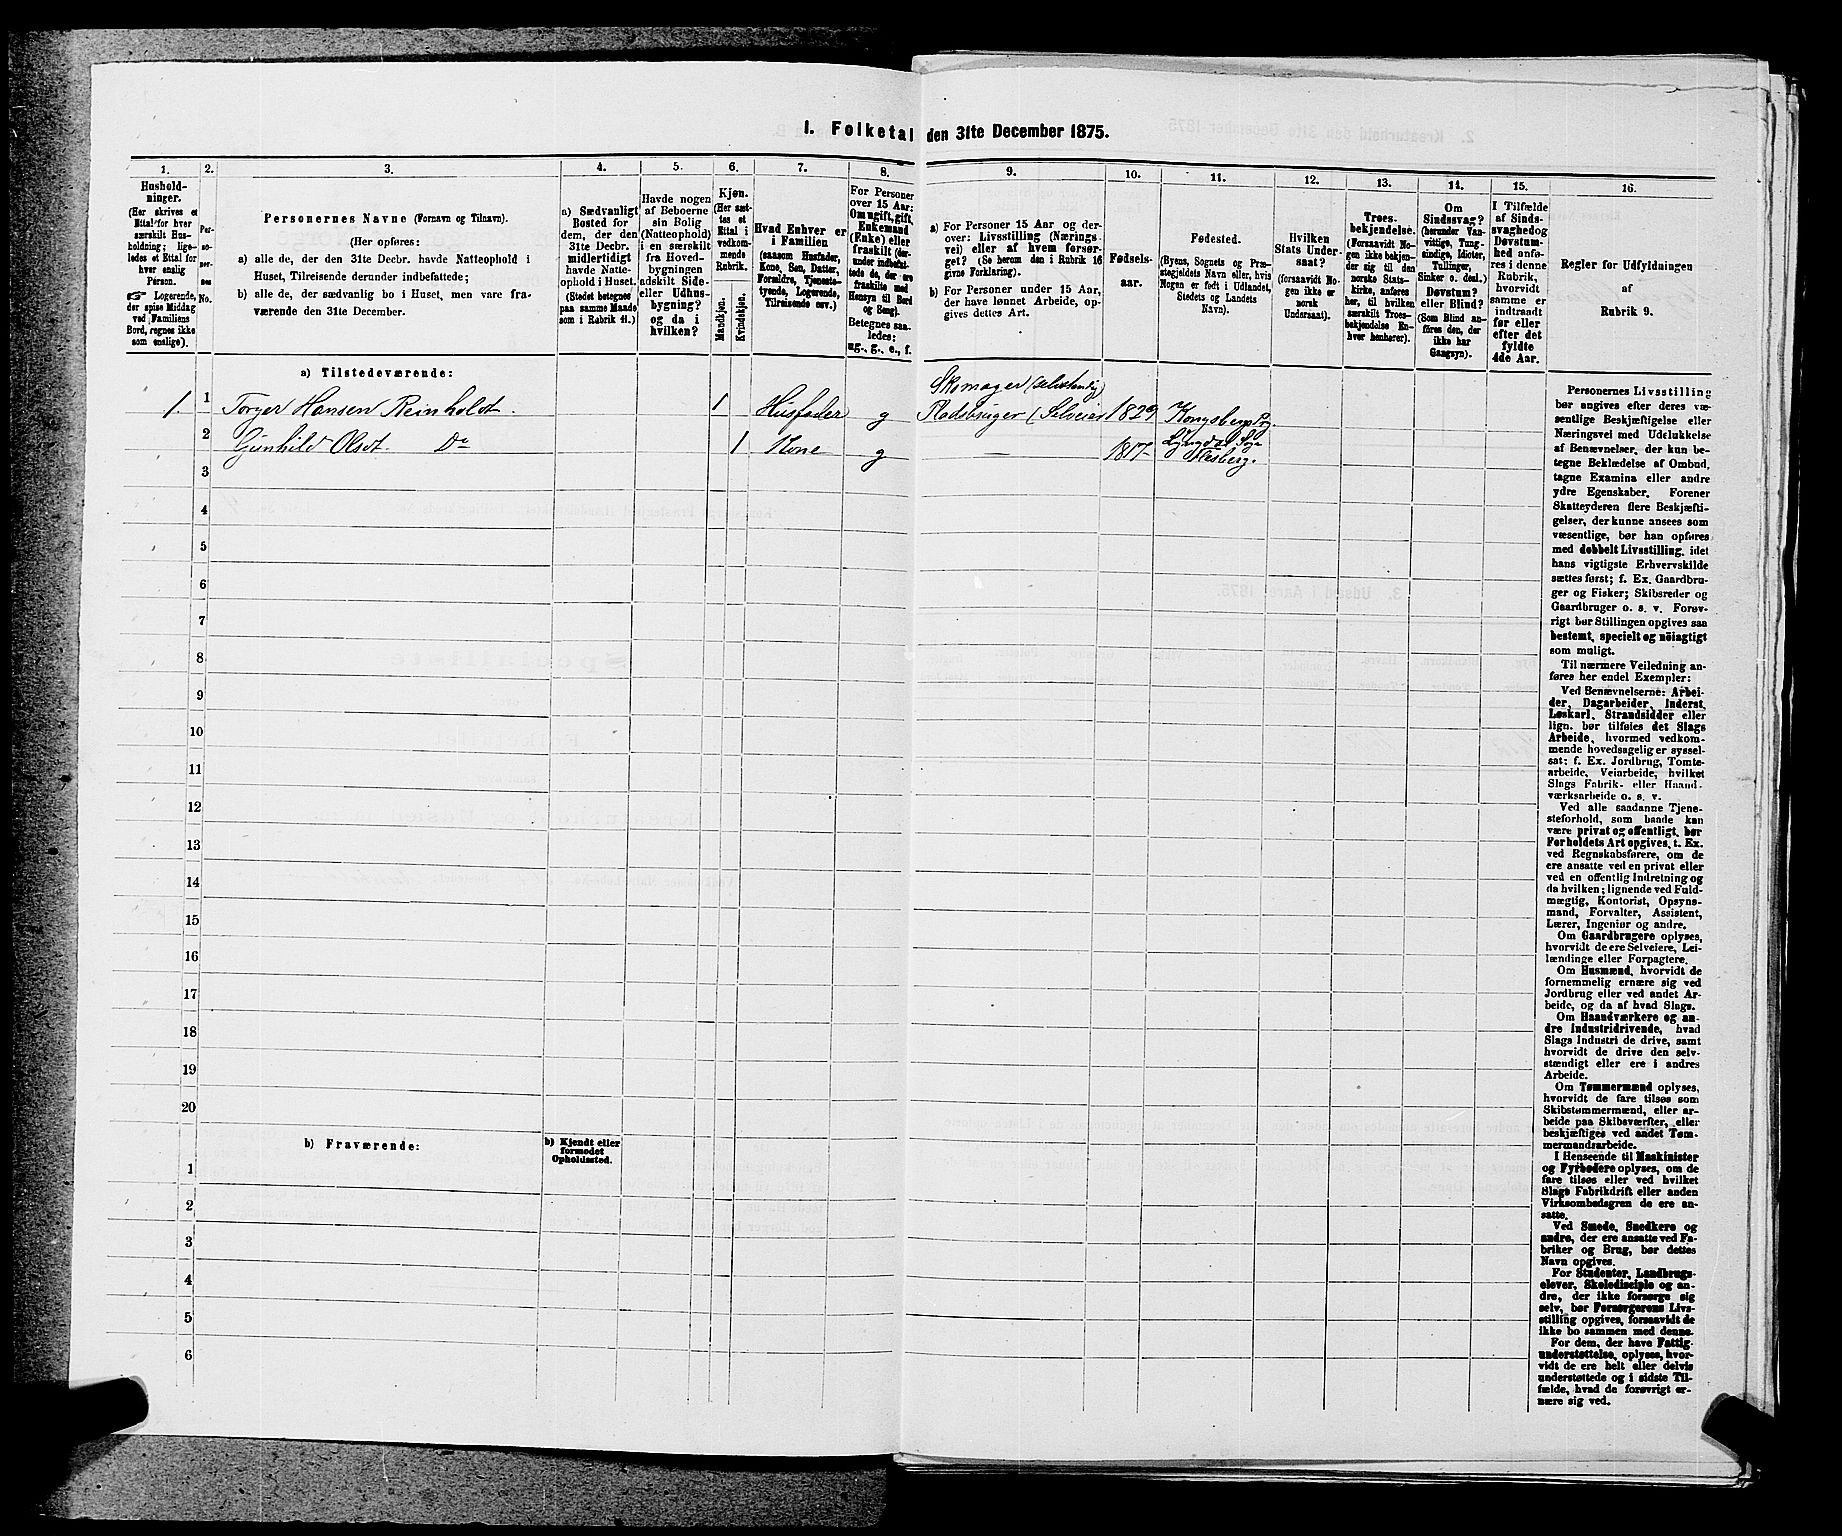 1. Folketal den 31te December 1875.
1. 2. 3. 4. 5. 6. 7. 8. 9. 10. 11. 12. 13. 14. 15. 16.
Hushold-
ninger.
(Her skrives et
Ettal for hver
særskilt Hus-
holdning; lige-
ledes et Ettal for
hver enslig
Person.
☞ Logerende,
der spise Middag
ved Familiens
Bord, regnes ikke
som enslige).
Per-
so-
ner-
nes
No.
Personernes Navne (Fornavn og Tilnavn).
(Her opføres:
a) alle de, der den 31te Decbr. havde Natteophold i
Huset, Tilreisende derunder indbefattede;
b) alle de, der sædvanlig bo i Huset, men vare fra-
værende den 31te December.
a) Sædvanligt
Bosted for
dem, der den
31te Decbr.
midlertidigt
havde Natte-
ophold i Huset.
(Stedet betegnes
paa samme Maade
som i Rubrik 11.)
Havde nogen
af Beboerne
sin Bolig
(Natteophold)
i en særskilt
fra Hoved-
bygningen
adskilt Side-
eller Udhus-
bygning?
og da i
hvilken?
Kjøn.
(Her sæt-
tes et
Ettal i
vedkom-
mende
Rubrik.
Mandkjøn.
Kvindekjøn.
Hvad Enhver er
i Familien
(saasom Husfader,
Kone, Søn, Datter,
Forældre, Tjeneste-
tyende, Logerende,
Tilreisende osv.)
For Personer
over 15 Aar:
Om ugift, gift,
Enkemand
(Enke) eller
fraskilt (der-
under indbefat-
tede de, der ere
fraskilte med
Hensyn til Bord
og Seng).
Betegnes saa-
ledes:
ug., g., e., f.
a) For Personer 15 Aar og der-
over: Livsstilling (Nærings-
vei) eller af hvem forsør-
get? (Se herom den i Rubrik 16
givne Forklaring).
b) For Personer under 15 Aar,
der have lønnet Arbeide, op-
gives dettes Art.
Fødsels-
aar.
Fødested.
(Byens, Sognets og Præ-
stegjeldets Navn eller, hvis
Nogen er født i Udlandet,
Stedets og Landets
Navn).
Hvilken
Stats Under-
saat?
(forsaavidt No-
gen ikke er
norsk
Undersaat).
Troes-
bekjendelse.
(Forsaavidt No-
gen ikke bekjen-
der sig til den
norske Stats-
kirke, anføres
her, til hvilken
særskilt Troes-
bekjendelse En-
hver henhører).
Om
Sindssvag?
(herunder Van-
vittige, Tung-
sindige, Idioter,
Tullinger,
Sinker o. desl.)
Døvstum?
eller Blind?
(Som Blind an-
føres den, der
ikke har
Gangsyn).
I Tilfælde
af Sinds-
svaghed og
Døvstum-
hed anfø-
res i denne
Rubrik,
hvorvidt
samme er
indtraadt
før eller
efter det
fyldte
4de Aar.
Regler for Udfyldningen
af
Rubrik 9.
a) Tilstedeværende:
Skomager (selvstændig)
1. 1 Torger Hansen Reinholdt. 1 Husfader g Pladsbruger (Selveier 1829 Kongsberg
2 Gunhild Olsdt. Do 1 Kone g — 1817 Lyngdal Sogn
Flesberg.
3
4
5
6
7
8
9
10
11
12
13
14
15
16
17
18
19
20
b) Fraværende:
b) Kjendt eller
formodet
Opholdssted.
1
2
3
4
5
6
Personernes Livsstilling
bør angives efter deres væ-
sentlige Beskjæftigelse eller
Næringsvei med Udelukkelse
af Benævnelser, der kun be-
tegne Beklædelse af Ombud,
tagne Examina eller andre
ydre Egenskaber. Forener
Skatteyderen flere Beskjæfti-
gelser, der kunne ansees som
væsentlige, bør han opføres
med dobbelt Livsstilling, idet
hans vigtigste Erhvervskilde
sættes først; f. Ex. Gaardbru-
ger og Fisker; Skibsreder og
Gaardbruger o. s. v. Forøv-
rigt bør Stillingen opgives saa
bestemt, specielt og nöiagtigt
som muligt.
Til nærmere Veiledning an-
føres her endel Exempler:
Ved Benævnelserne: Arbei-
der, Dagarbeider, Inderst,
Løskarl, Strandsidder eller
lign. bør tilføies det Slags
Arbeide, hvormed vedkom-
mende hovedsagelig er syssel-
sat; f. Ex. Jordbrug, Tomte-
arbeide, Veiarbeide, hvilket
Slags Fabrik- eller Haand-
værksarbeide o. s. v.
Ved alle saadanne Tjene-
steforhold, som baade kan
være privat og offentligt, bør
Forholdets Art opgives, t. Ex.
ved Regnskabsførere, om de
ere ansatte ved en privat eller
ved en offentlig Indretning og
da hvilken; lignende ved Fuld-
mægtig, Kontorist, Opsyns-
mand, Forvalter, Assistent,
Lærer, Ingeniør og andre.
Om Gaardbrugere oplyses,
hvorvidt de ere Selveiere, Lei-
lændinge eller Forpagtere.
Om Husmænd, hvorvidt de
fornemmelig ernære sig ved
Jordbrug eller ved andet Ar-
beide, og da af hvad Slags.
Om Haandværkere og an-
dre Industridrivende, hvad
Slags Industri de drive, samt
hvorvidt de drive den selv-
stændigt eller ere i andres
Arbeide.
Om Tømmermænd oplyses,
hvorvidt de fare tilsøs som
Skibstømmermænd, eller ar-
beide paa Skibsværfter, eller
beskjæftiges ved andet Tøm-
mermandsarbeide.
I Henseende til Maskinister
og Fyrbødere oplyses, om de
fare tilsøs eller ved hvilket
Slags Fabrikdrift eller anden
Virksombedsgren de ere an-
satte.
Ved Smede, Snedkere og
andre, der ere ansatte ved Fa-
briker og Brug, bør dettes
Navn opgives.
For Studenter, Landbrugs-
elever, Skoledisciple og an-
dre, der ikke forsørge sig
selv, bør Forsørgerens Livs-
stilling opgives, forsaavidt de
ikke bo sammen med denne.
For dem, der have Fattig-
understøttelse, oplyses, hvor-
vidt de ere helt eller delvis
understøttede og i sidste Til-
fælde, hvad de forøvrigt er-
nære sig ved.